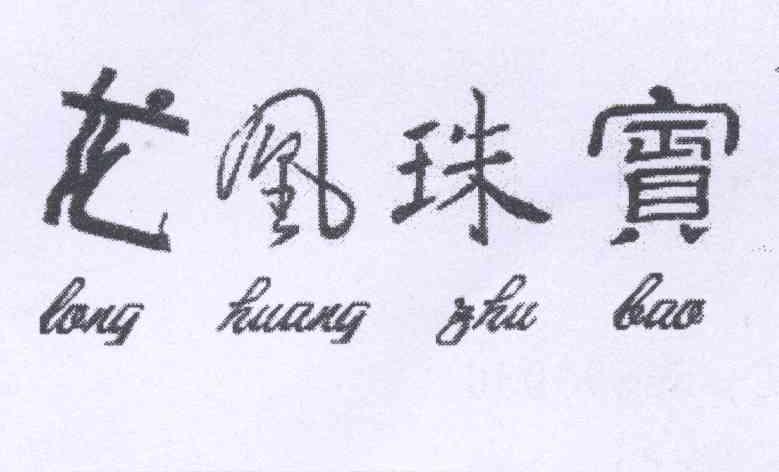 龙凰珠寶
long huang zhu bao